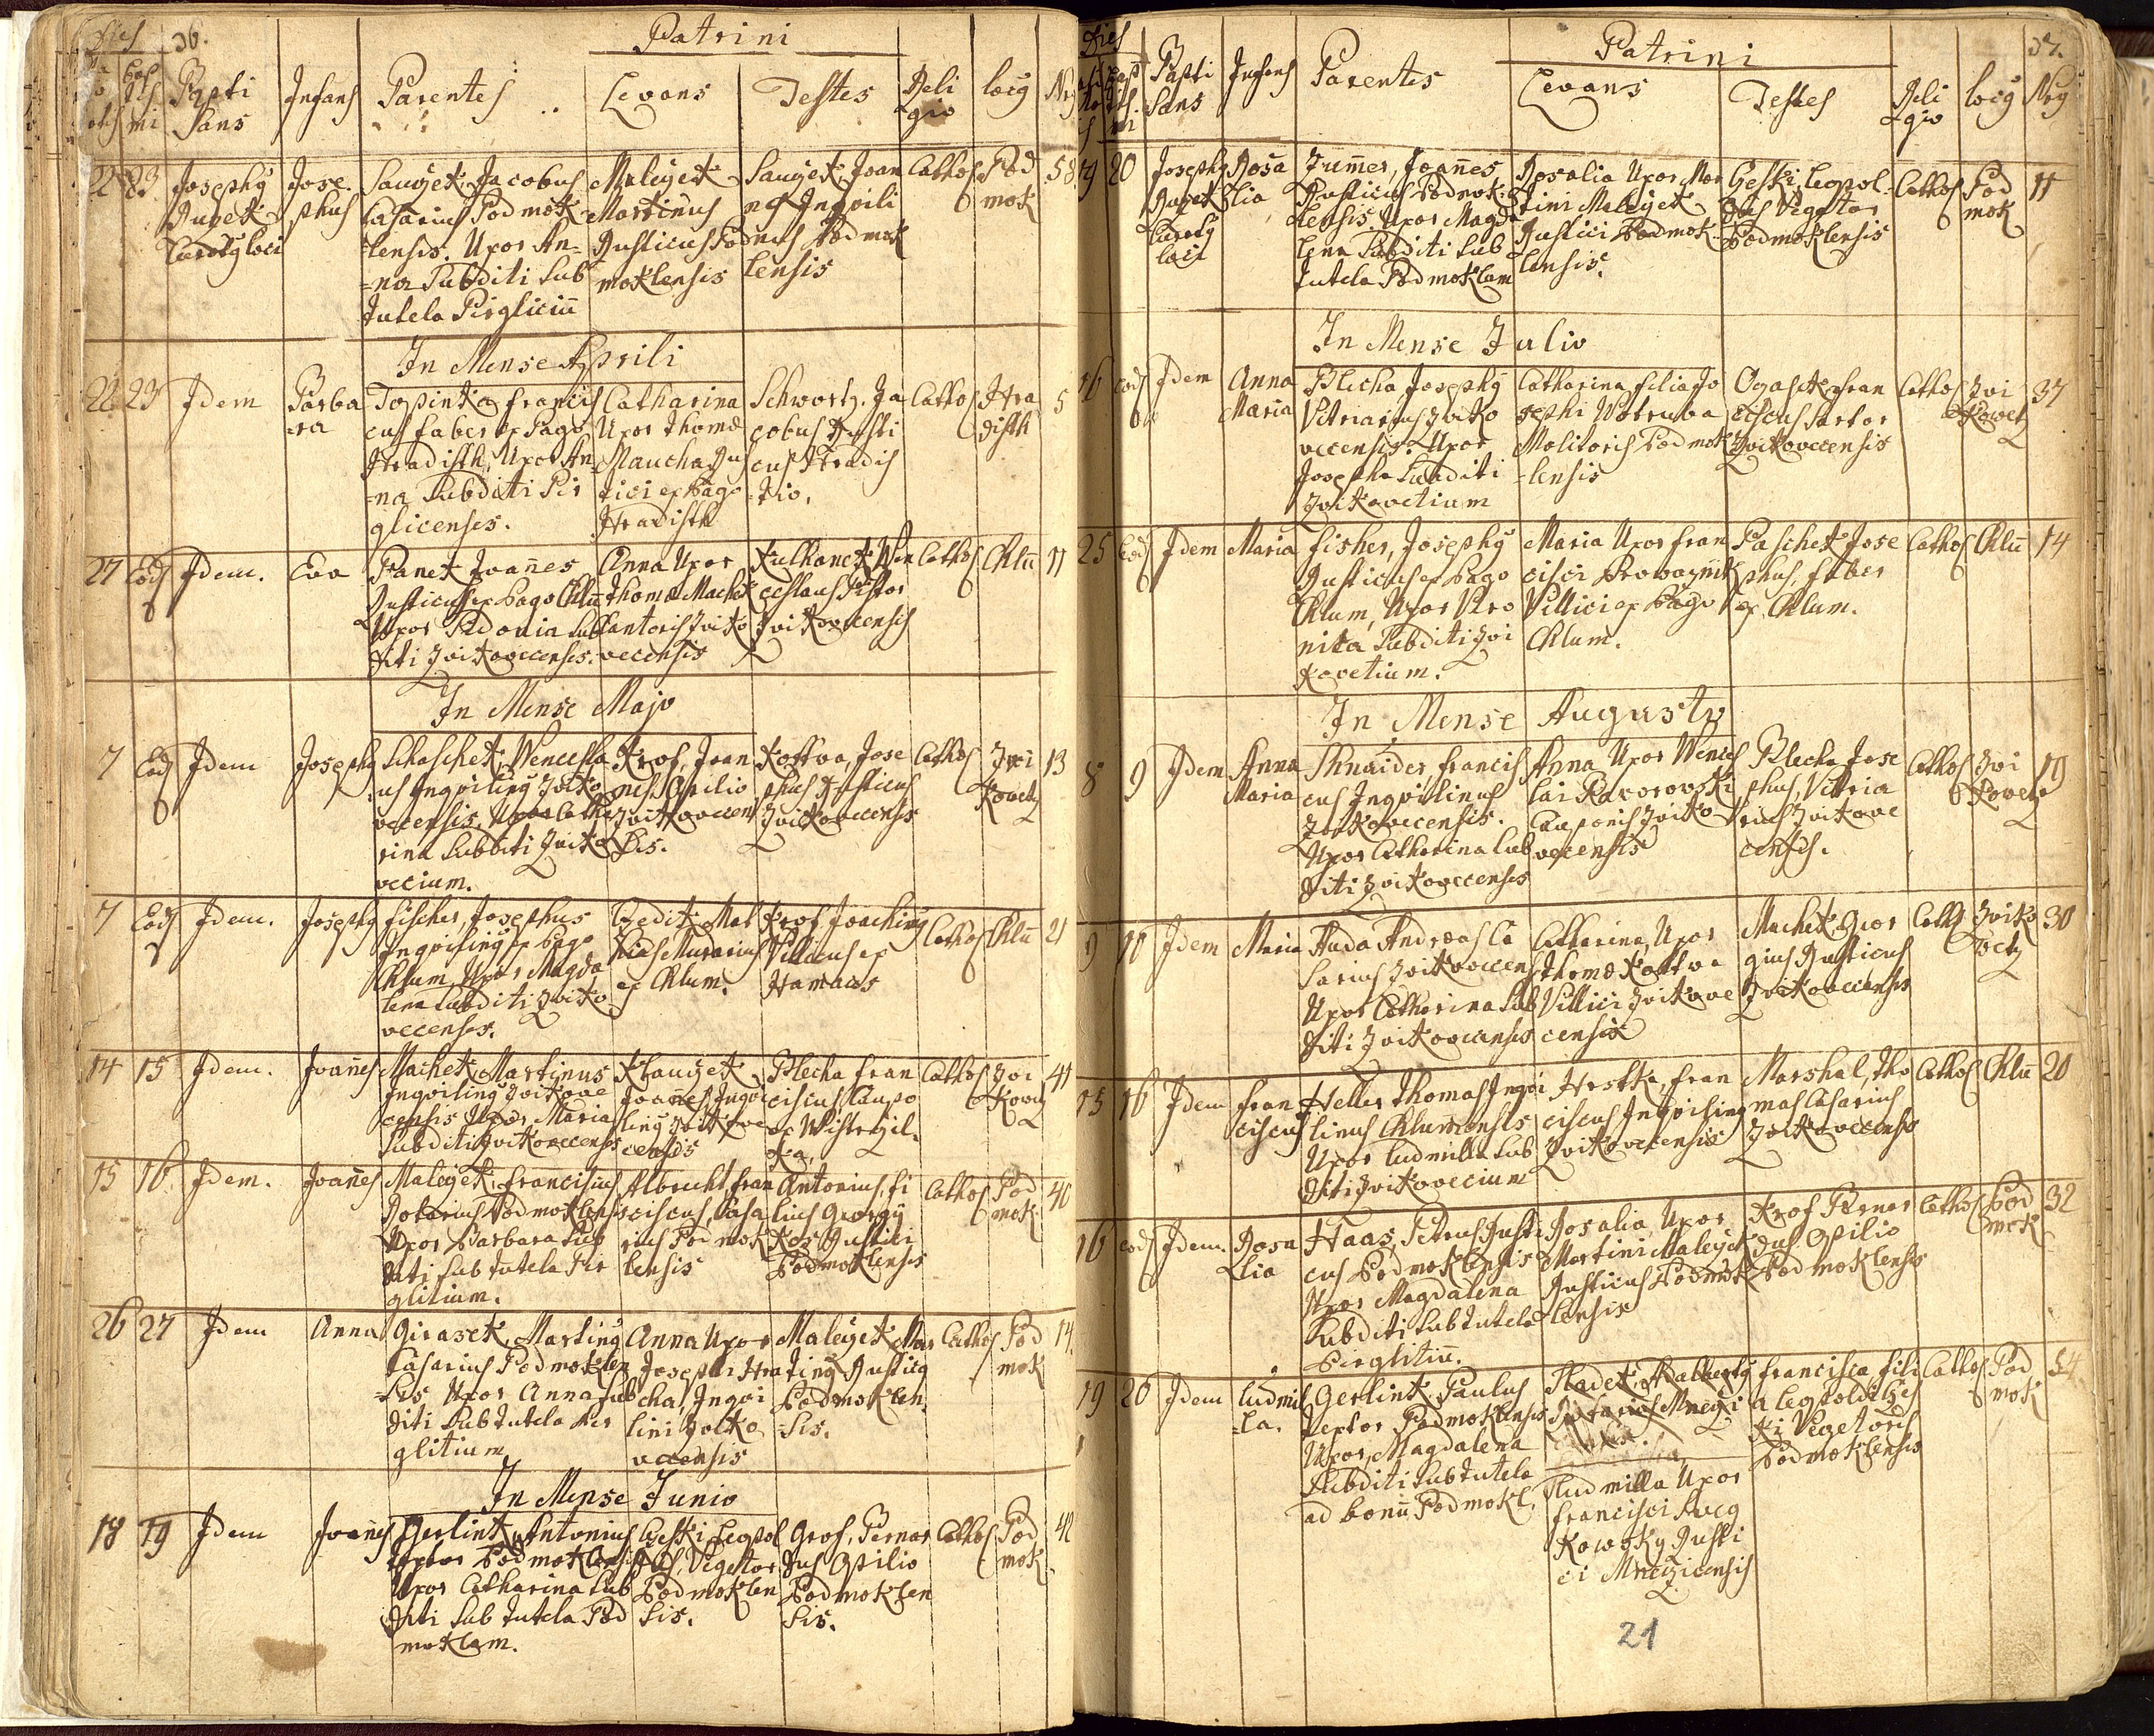 Dies
36.
Patrini
Bapti
Sans
Infans
Parentes
Levans
Testes
Reli
gio
locq
Nrq
22 23
Josephq
Duxek
loci
Jose
phus
Jacobus
Casarius Podmok
lensis. Uxor An=
=na Subditi Sub
Tutela Pirgliciu
Maleyek
Martinus
Rusticus Pod
moklensis
Joan
nes Inqvili
nus Podmok
lensis
Cathos
Pod
mok
58
In Mense Aprili
22 23 Idem
Barba
ra
Topinka Francis
cus faber ex Pago
Hradisth, Uxor An
=na Subditi Pir
glicenses.
Catharina
Uxor Thomæ
Maucha Rus
tici ex Pago
Hradisth
Schwortz. Ja
cobus Rusti
cus Hradis
Cathos
Hra
disth
5
27 Eod Idem.
Eva
Panek Joanes
Rusticus ex Pago Chlu
Uxor Sidonia Sub
diti Zvikovecenses.
Anna Uxor
Thomæ Machek
Cantoris Zviko
vecensis
Kulhanek Wen
ceslaus Pistor
Zvikovecensis
Cathos
Chlu
11
In Mense Majo
7 Eod Idem
Josephq
Schaschek, Wencesla
us Inqvilinq Zviko
vecensis, Uxor Catha
rina Subditi Zviko
vecium.
Krof, Joan
nes Opilio
Zvikovecen
sis.
Kottva, Jose
phus Rusticus
Zvikovecensis
Cathos
Zvi
kovetz
13
7 Eod Idem.
Josephq
Fischer, Josephus
Inqvilinq ex Pago
Chlum Uxor Magda
lena Subditi Zviko
vecenses.
Mat
hias Murarius
ex Chlum.
Krof Joachimq
Villicus ex
Cathos
Chlu
21
14 15 Idem.
Joanes
Machek Martinus
Inqvilinq Zvikove
censis Uxor Maria
Subditi Zvikovecenses
Joannes Inqvi
linq Zvikove
censis
Blecha Fran
ciscus Caupo
Cathos
Zvi
kovetz
41
15 16. Idem.
Joanes
Maleyek, Franciscus
Podmoklensis
Uxor Barbara Sub
diti Sub Tutela Pir
glitium.
Albrecht, Fran
ciscus, Casa
rius Podmok
lensis
Antonius, fi
lius Georgij
Kos Rustici
Podmoklensis
Cathos
Pod
mok
40
26 27 Idem
Anna
Girasek, Martinq
Casarius Podmoklen
=sis Uxor Anna Sub
diti Sub Tutela Pir
glitium
Anna Uxor
Josephi Hra
cha, Inqvi
lini Zviko
vecensis
Maleyek Mar
tinq Rusticq
Podmoklen
=sis.
Cathos
Pod
mok
14.
In Mense Junio
18 19 Idem
Joanes
Gerlink, Antonius
Textor Podmoklensis
Uxor Catharina Sub
diti Sub Tutela Pod
moklam.
Geski Leopol
dus, Vegetor
Podmoklen
sis.
Grof, Bernar
dus Opilio
Podmoklen
sis.
Cathos
Pod
mok
42
Dies
Patrini
37.
Bapti
Sans
Infans
Parentes
Levans
Testes
Reli
gio
locq
Nrq
19 20
Josephq
Duxek
loci
Rosa
lia
Zumer, Joanes,
Rusticus Podmok=
lensis. Uxor Magda
lena Subditi Sub
Tutela Podmoklam
Rosalia Uxor Mar
tini Maleyek
Rustici Podmok
lensis.
Geski, Leopol
dus Vegetor
Podmoklensis
Cathos
Pod
mok
11
In Mense Julio
16 Eod Idem
Anna
Maria
Blecha, Josephq
Vitriarius Zviko
vecensis. Uxor
Josepha Subditi
Zvikovetium
Catharina filia Jo
sephi Wotruba
Molitoris Podmok
=lensis
Fran
ciscus Sartor
Zvikovecensis
Cathos
Zvi
kovetz
37
25 Eod Idem
Maria
Fisher, Josephq
Rusticus ex Pago
Chlum, Uxor Vero
nika Subditi Zvi
kovetium.
Maria Uxor Fran
cisci
Villici ex Pago
Chlum.
Paschek Jose
phus, faber
ex Chlum.
Cathos
Chlu
14
In Mense Augusto
8 9 Idem
Anna
Maria
Shnaider, Francis
cus Inqvilinus
Zvikovecensis.
Uxor Catharina Sub
diti Zvikovecenses
Anna Uxor Wences
lai Raworowski
Cauponis Zviko
vecensis
Blecha Jose
phus, Vitria
rius Zvikove
censis.
Cathos
Zvi
kovetz
19
9 10 Idem
Maria
Auda Andreas Ca
sarius Zvikovecensis
Uxor Catharina Sub
diti Zvikovecenses
Catharina, Uxor
Thomæ Kottva
Villici Zvikove
censis
Machek Geor
gius Rusticus
Zvikovecensis
Cathos
Zviko
vetz
30
15 16 Idem
Fran
ciscus
Heller Thomas Inqvi
linus Chlumensis
Uxor Ludmilla Sub
diti Zvikovecium
Hrstka, Fran
ciscus Inqvilinq
Zvikovecensis
Marshal, Tho
mas Casarius
Zvikovecensis
Cathos
Chlu
20
16 Eod Idem.
Rosa
lia
Haas, Petrus Rusti
cus Podmoklensis
Uxor Magdalena
Subditi Sub Tutela
Pirglitiu.
Rosalia, Uxor
Martini Maleyek
Rusticus Podmok
lensis
Krof Bernar
dus Opilio
Podmoklensis
Cathos
Pod
mok
32
19 20 Idem
Ludmil
la.
Gerlink, Paulus
Textor Podmoklensis
Uxor, Magdalena
Subditi Sub Tutela
ad bonu Podmokl.
Hladek, Adalbertq
Ludmilla Uxor
Francisci
Rusti
ci Mneziczensis
Francisca, fili
a Leopoldi Ges
ki Vegetoris
Podmoklensis
Cathos
Pod
mok
54
21